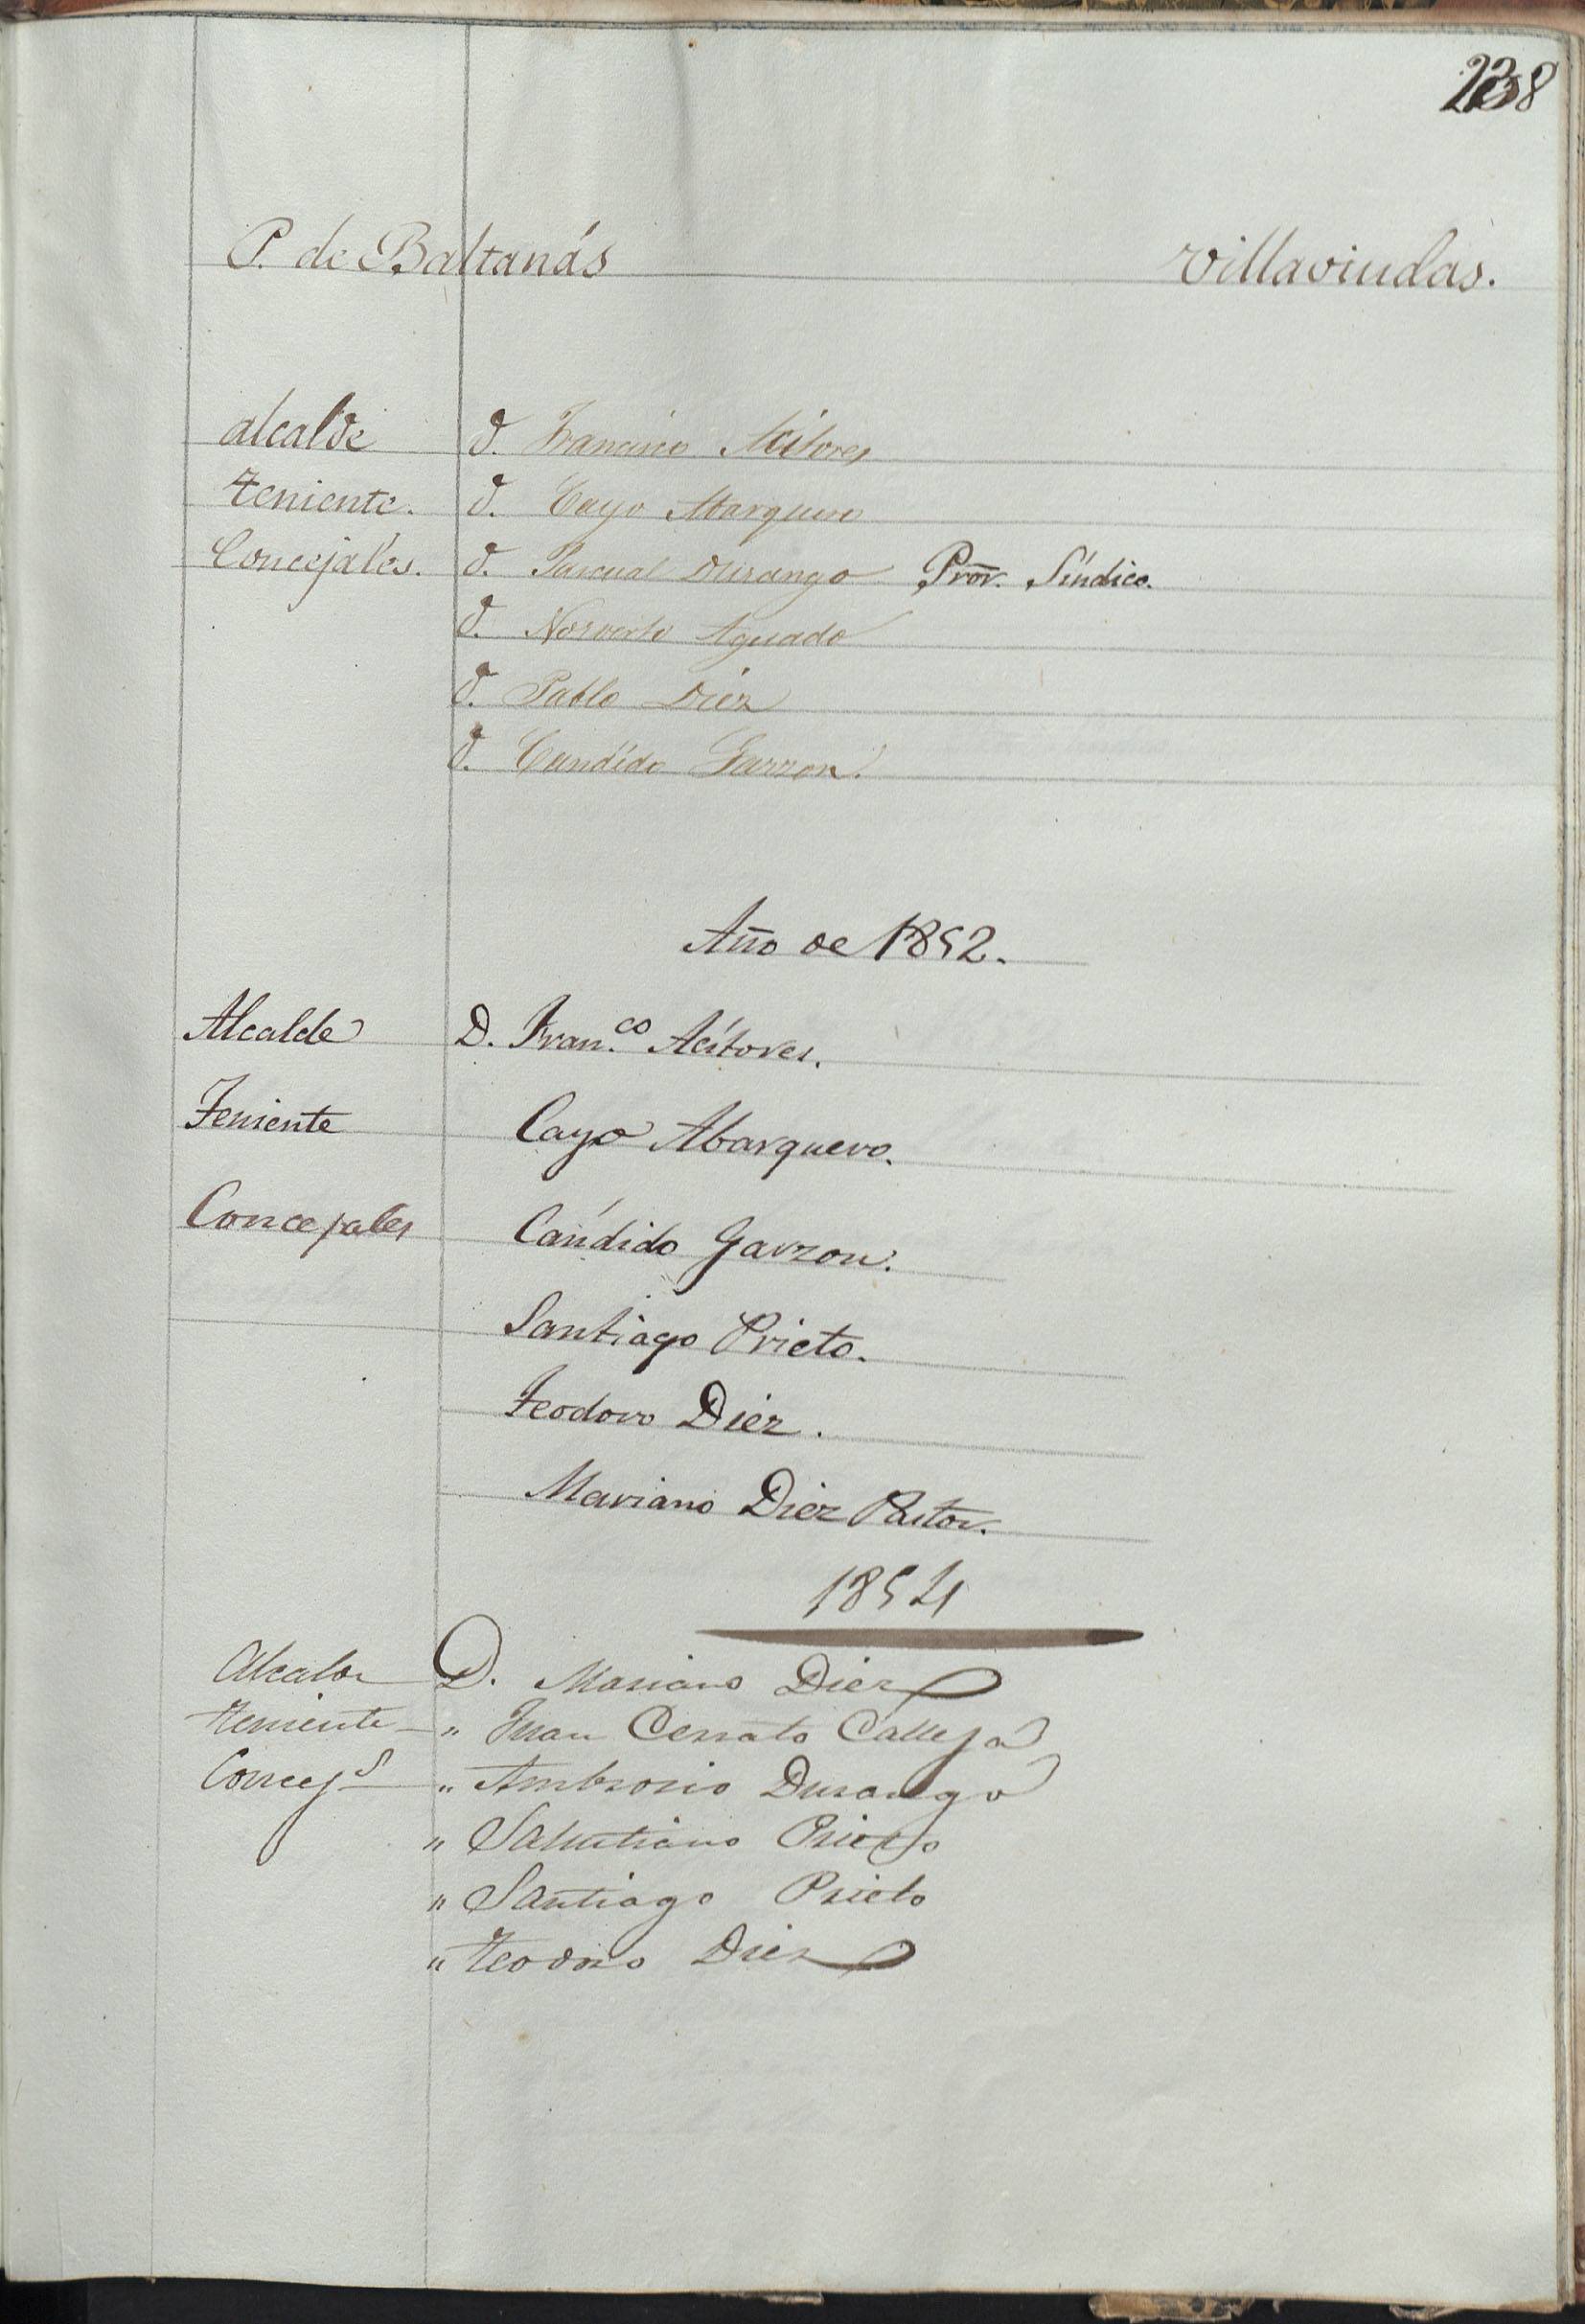 238
P. de Baltanás Villaviudas.
Alcalde d. Francisco Acitores
Teniente. d. Cayo Abarquero
Concejales. d. Pascual Durango Pror. Síndico.
d. Norverto Aguado
d. Pablo Diez
d. Candido Garzon.
Año de 1852.
Alcalde D. Fran.co Acítores.
Teniente Cayo Abarquero.
Concejales Cándido Garzon.
Santiago Prieto.
Teodoro Diez.
Mariano Diez Pastor.
1854
Alcalde D. Mariano Diez
Teniente " Juan Cerrato Calleja
Concejs " Ambrosio Durango
" Salustiano
" Santiago Prieto
" Teodoro Diez